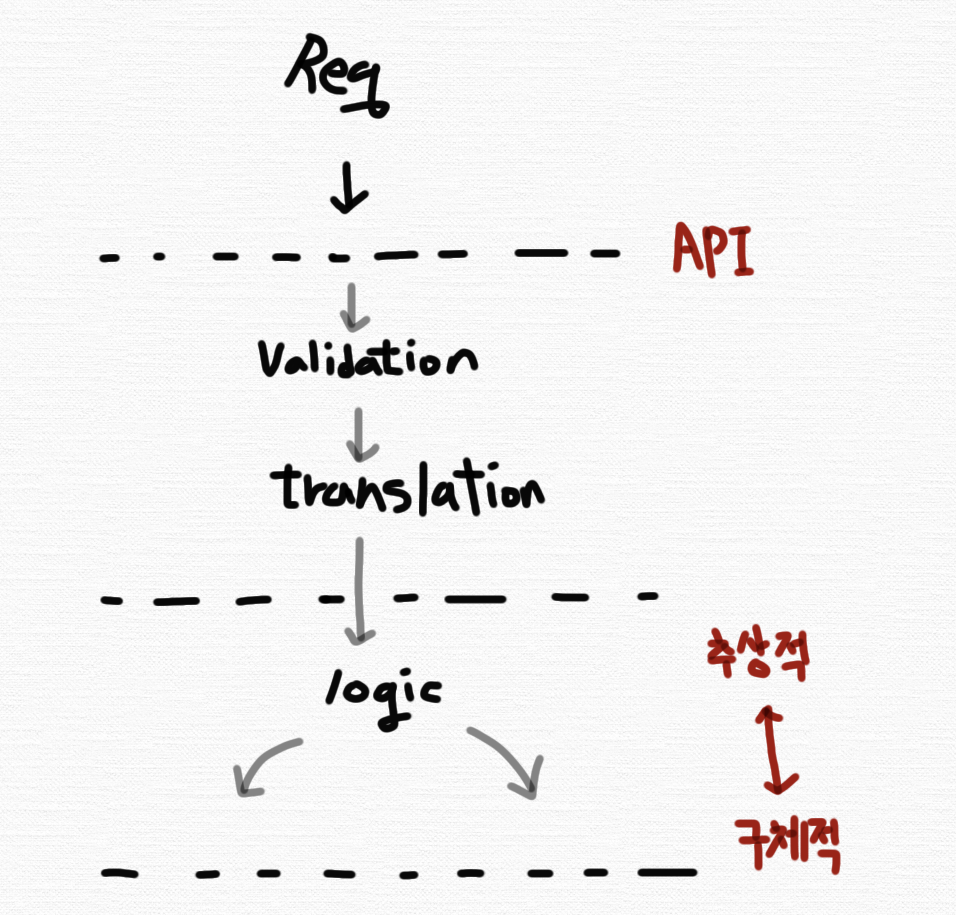 Req
API
Validation
translation
추상적
logic
구체적